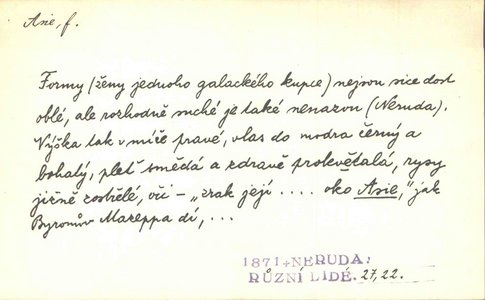 Asie, f.
Formy (ženy jednoho galackého kupce) nejsou sice dost
oblé, ale rozhodně suché je také nenazvu (Neruda).
Výška tak v míře pravé, vlas do modra černý a
bohatý, pleť smědá a zdravě prokvětalá, rysy
jižně zostřelé, oči – „zrak její .... oko Asie,“ jak
Byronův Mazeppa dí, ...
1871 NERUDA:
RŮZNÍ LIDÉ. 27, 22.